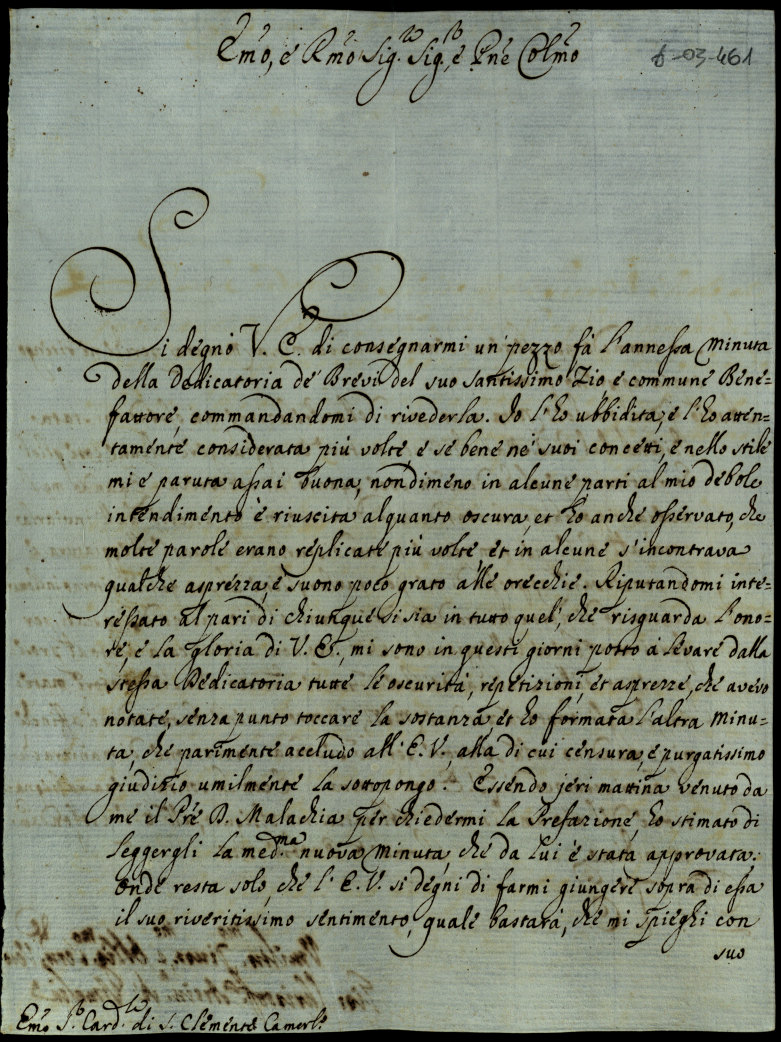 Emo, e Rmo Sig.r Sig.r, e Pne Colmo
6-03-461
Si degnò V. E. di consegnarmi un pezzo fà l'annessa Minuta
della Dedicatoria de' Brevi del suo Santissimo Zio e commune Bene=
fattore, commandandomi di rivederla. Io l'ho ubbidita, e l'ho atten=
tamente considerata più volte e se bene ne' suoi concetti, e nello stile
mi è paruta assai buona, nondimeno in alcune parti al mio debole
intendimento è riuscita alquanto oscura, et ho anche osservato, che
molte parole erano replicate più volte et in alcune s'incontrava
qualche asprezza, e suono poco grato alle orecchie. Riputandomi inte=
ressato al pari di chiunque si sia in tutto quel, che risguarda l'ono=
re, e la gloria di V. E., mi sono in questi giorni posto a levare dalla
stessa Dedicatoria tutte le oscurità, repetizioni, et asprezze, che avevo
notate, senza punto toccare la sostanza et ho formata l'altra Minu=
ta, che parimente accludo all'E. V., alla di cui censura, e purgatissimo
giudizio umilmente la sottopongo. Essendo jeri mattina venuto da
me il Pre D. Malachia per chiedermi la Prefazione, ho stimato di
leggergli la med.ma nuova Minuta, che da lui è stata approvata.
Onde resta solo, che l'E. V. si degni di farmi giungere sopra di essa
il suo riveritissimo sentimento, quale bastarà, che mi spieghi con
suo
Emo S.r Card.le di S. Clemente Camerl.o